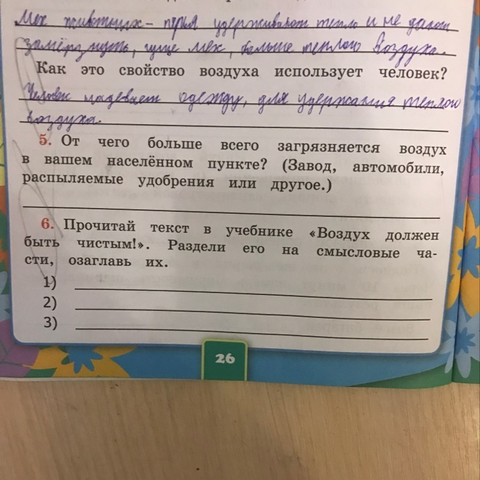 Мех животных - перья удерживают тепло и не дают
замёрзнуть, гуще мех, больше теплого воздуха.
Как это свойство воздуха использует человек?
Человек надевает одежду, для удержания теплого
воздуха.
5. От чего больше всего загрязняется воздух
в вашем населённом пункте? (Завод, автомобили,
распыляемые удобрения или другое.)
6. Прочитай текст в учебнике «Воздух должен
быть чистым!». Раздели его на смысловые ча-
сти, озаглавь их.
1)
2)
3)
26